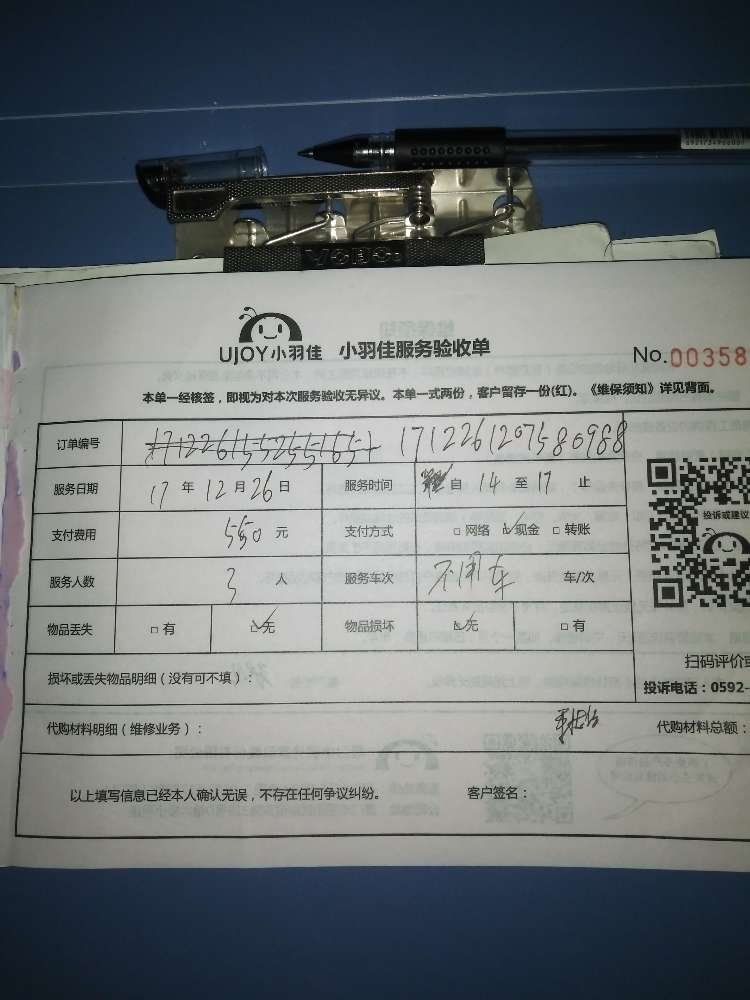 UJOY小羽佳 小羽佳服务验收单
No.00358
本单一经核签，即视为对本次服务验收无异议。本单一式两份，客户留存一份(红)。《维保须知》详见背面。
订单编号 1712261207580988
服务日期 17 年 12 月 26 日 服务时间 自 14 至 17 止
投诉或建议
支付费用 550 元 支付方式 □ 网络 ☑ 现金 □ 转账
服务人数 3 人 服务车次 不用车 车/次
物品丢失 □ 有 ☑ 无 物品损坏 ☑ 无 □ 有
扫码评价或
损坏或丢失物品明细（没有可不填）：
投诉电话：0592-
代购材料明细（维修业务）：
代购材料总额：
以上填写信息已经本人确认无误，不存在任何争议纠纷。 客户签名：